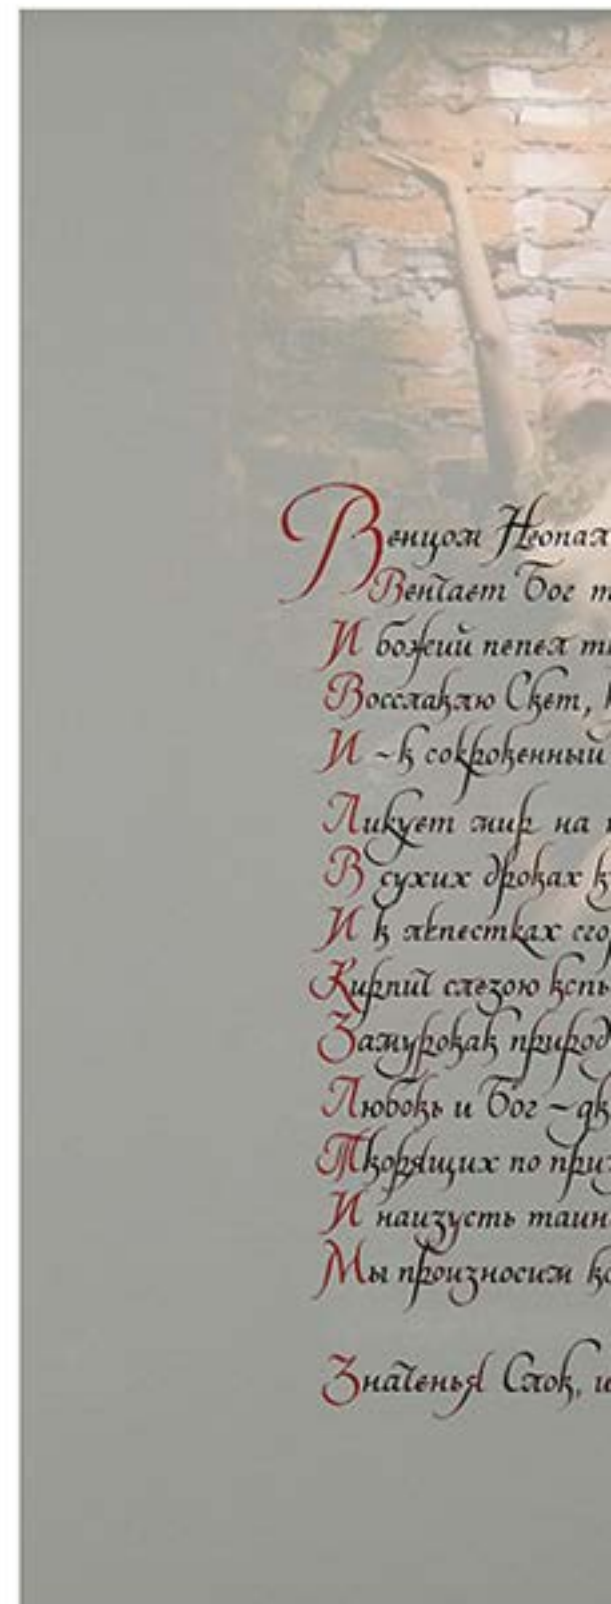 Венцом Неопал
Венчает Бог т
И божий пепел
Восславлю Свет,
И - в сокровенный
Ликует мир на
В сухих дровах
И в лепестках сго
Кирпич слезою вспы
Замуровав природ
Любовь и Бог - дв
Творящих по при
И наизусть таин
Мы произносим
Значенья Слов,